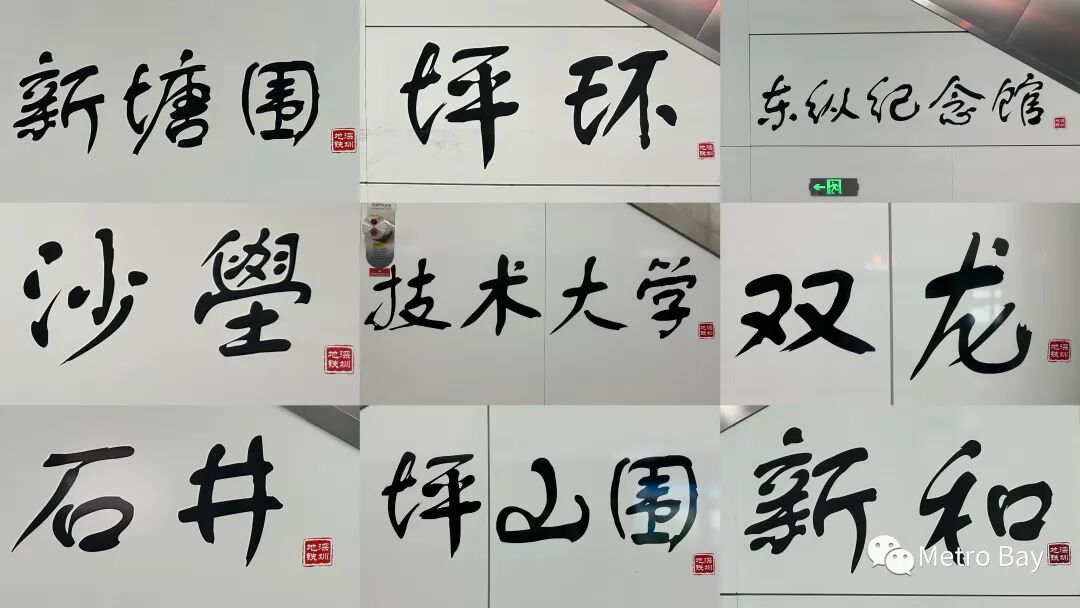 新塘围
深圳地铁
坪环
深圳地铁
东纵纪念馆
深圳地铁
沙壆
深圳地铁
技术大学
深圳地铁
双龙
深圳地铁
石井
深圳地铁
坪山围
深圳地铁
新和
深圳地铁
Metro Bay